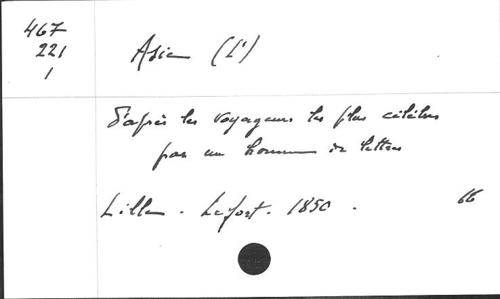 467
221
1
Asie (L')
d'après les voyageurs les plus célèbres
par un homme de lettres
Lille. Lefort. 1850.
66